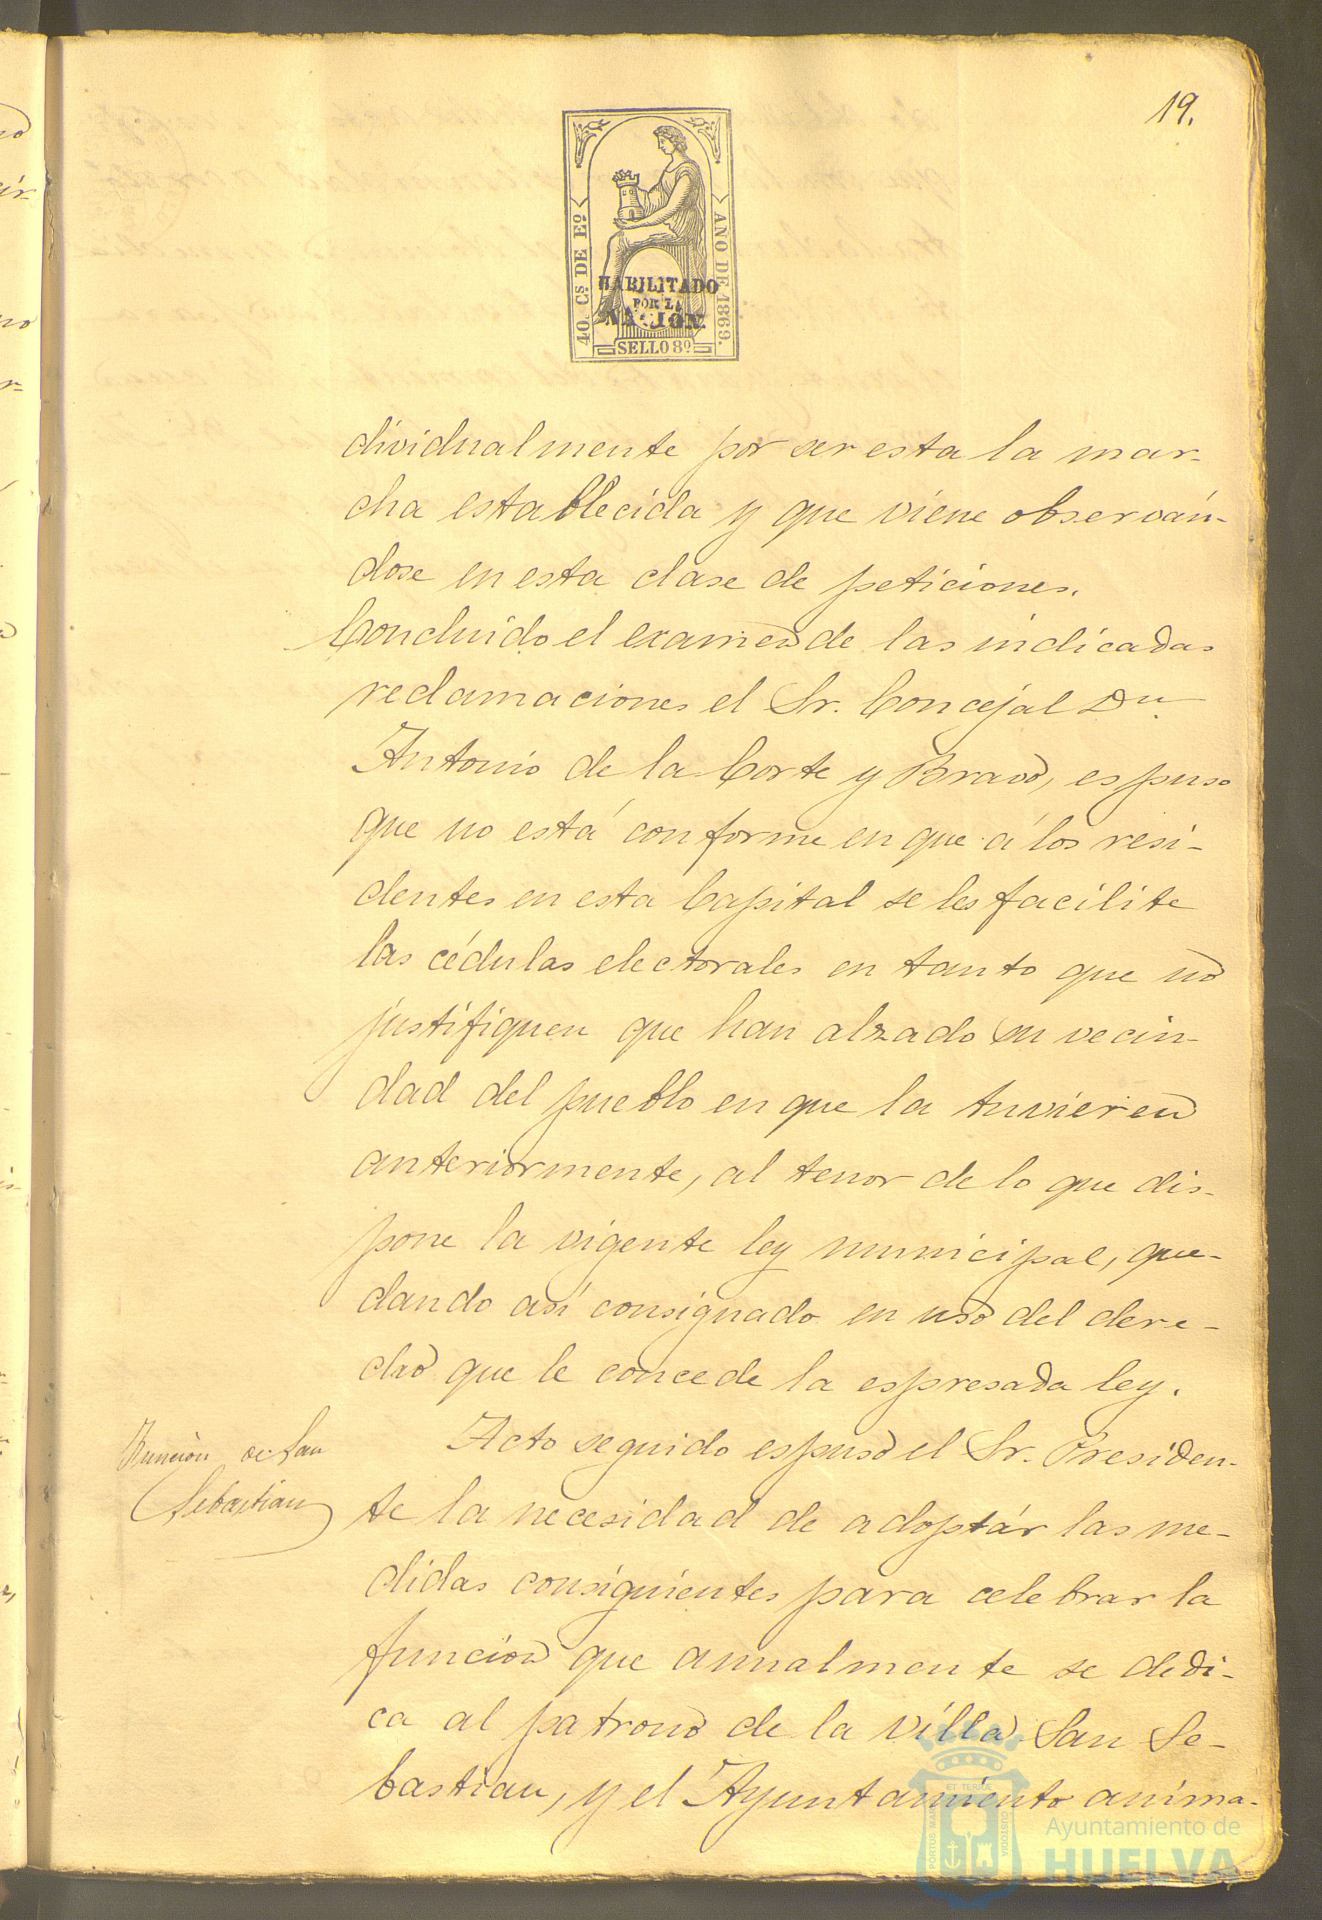 19.
40. Cs DE Eº
AÑO DE 1869.
HABILITADO
POR LA
NACION.
SELLO 8º
dividualmente por ser esta la mar-
cha establecida y que viene observán-
dose en esta clase de peticiones.
Concluido el examen de las indicadas
reclamaciones el Sr. Concejal Dn
Antonio de la Corte y Bravo, espuso
que no está conforme en que á los resi-
dentes en esta Capital se les facilite
las cédulas electorales en tanto que no
justifiquen que han alzado su vecin-
dad del pueblo en que la tuvieren
anteriormente, al tenor de lo que dis-
pone la vigente ley municipal, que-
dando así consignado en uso del dere-
cho que le concede la espresada ley.
Funcion de San
Sebastian
Acto seguido espuso el Sr. Presiden-
te la necesidad de adoptár las me-
didas consiguientes para celebrar la
funcion que anualmente se dedi-
ca al patrono de la villa San Se-
bastian, y el Ayuntamiento anima-
Ayuntamiento de
HUELVA